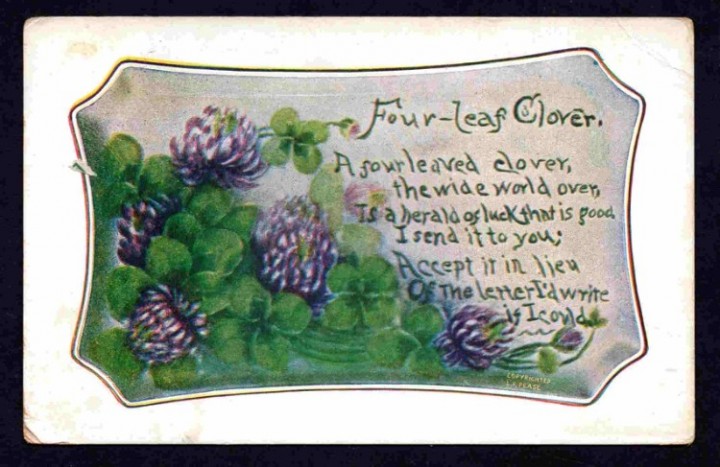 Four-leaf Clover.
A fourleaved clover,
the wide world over,
Is a herald of luck that is good.
I send it to you;
Accept it in lieu
Of the letter I'd write
if I could.
COPYRIGHTED